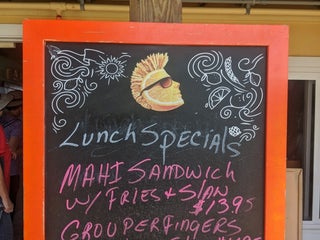 Lunch Specials
MAHI SANDWICH
W/ FRIES + SLAW
$13.95
GROUPER FINGERS